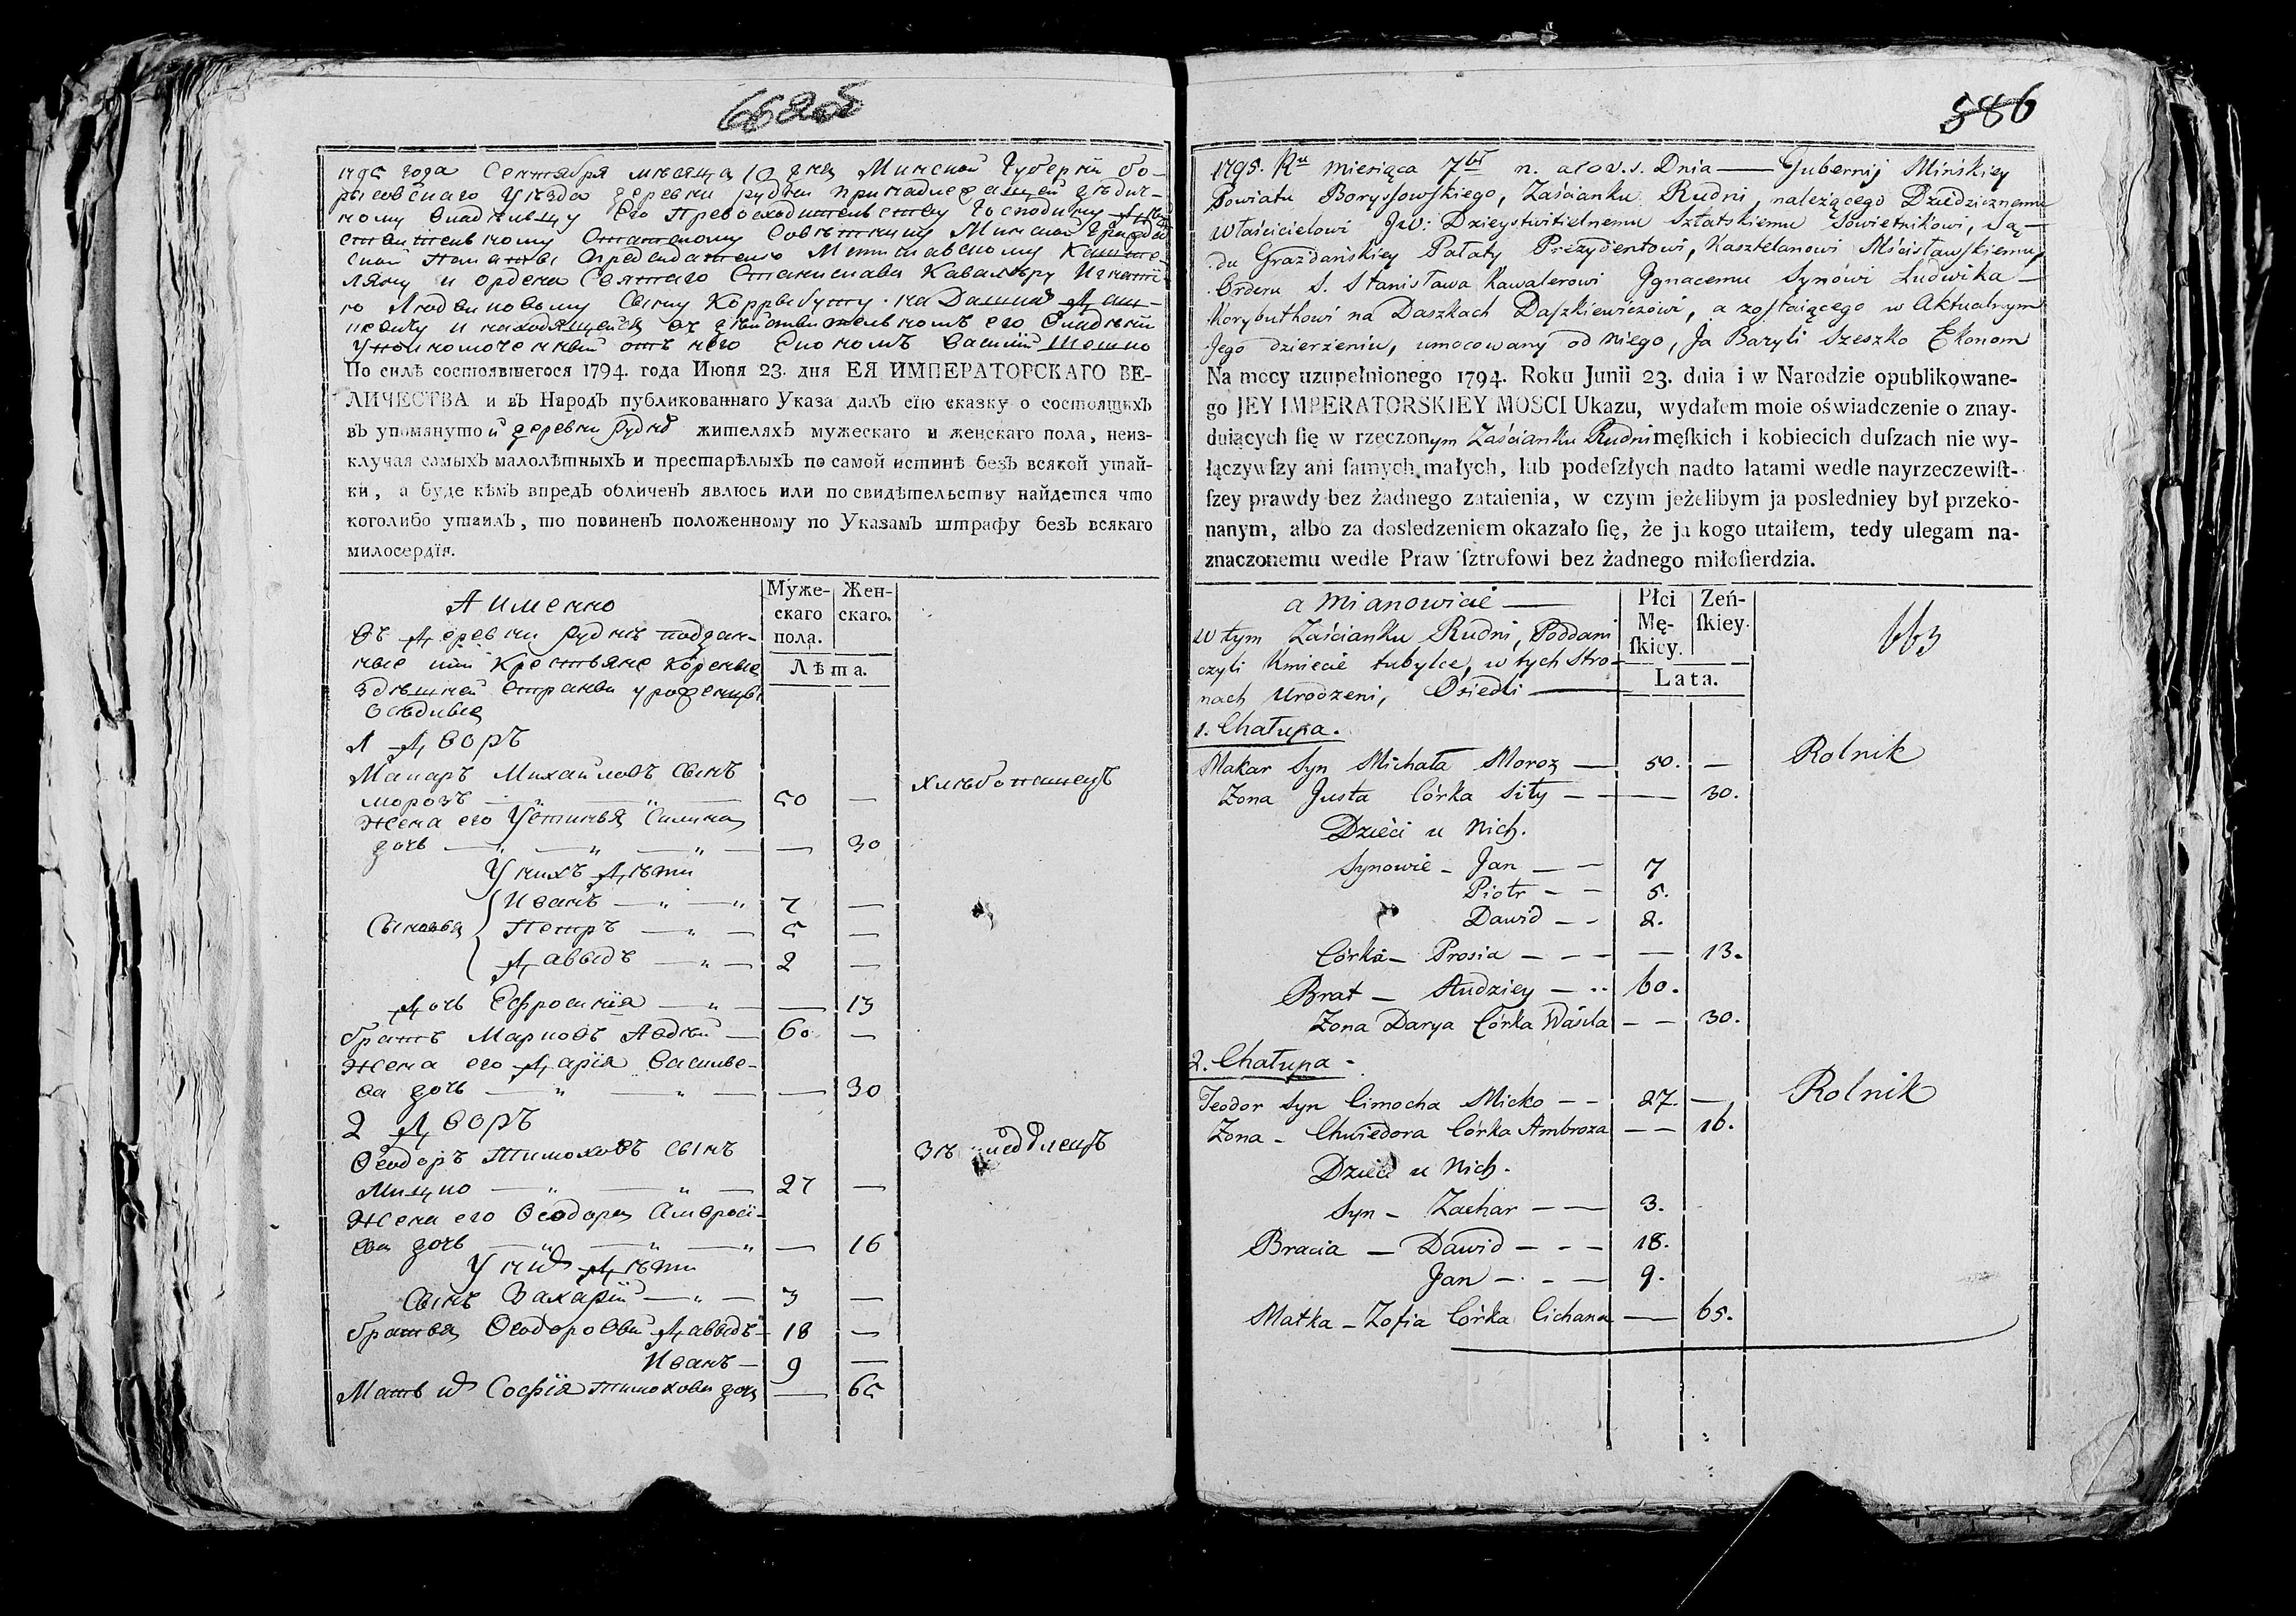 1795 года Сентября месяца 10 дня Минской Губернїи Бо-
рисовского Уѣзда деревни Рудни принадлежащей дѣдич-
ному Владѣльцу Его Превосходительству Господину Дѣй-
ствительному Статскому Совѣтнику Минской Гражд-
ской Палаты Предсѣдателю Мстиславскому Каште-
ляну и ордена Святаго Станислава Кавалеру Игнатї-
ю Людвиковому сыну Корыбуту на Дашках Даш-
кевичу и находящейся въ дѣйствительномъ его Владѣнїи
Уполномоченный отъ него Економъ Василий Шешко
По силѣ состоявшегося 1794. года Июня 23. дня ЕЯ ИМПЕРАТОРСКАГО ВЕ-
ЛИЧЕСТВА и въ Народъ публикованнаго Указа далъ сїю сказку о состоящихъ
въ упомянутой деревни Рудне жителяхъ мужескаго и женскаго пола, неиз-
ключая самыхъ малолѣтныхъ и престарѣлыхъ по самой истинѣ безъ всякой утай-
ки, а буде кѣмъ впредь обличенъ явлюсь или по свидѣтельству найдется что
коголибо утаилъ, то повиненъ положенному по Указамъ штрафу безъ всякаго
милосердїя.
Муже-
скаго
пола.
Жен-
скаго.
Лѣта.
А именно
Въ Деревни Руднѣ поддан-
ные или Крестьяне коренные
здѣшней страны уроженцы
осѣдлые
1 Дворъ
Макаръ Михайловъ сынъ
Морозъ — 50 —
хлѣбопашецъ
Жена его Устинья Силина
дочь — — 30
У нихъ Дѣти
Сыновья { Иванъ — 7 —
Петръ — 5 —
Давыдъ — 2 —
Дочь Ефросинїя — — 13
братъ Марковъ Авдѣй — 60 —
Жена его Дарїя Василье-
ва дочь — — 30
2 Дворъ
Ѳеодоръ Тимоховъ сынъ
Мицко — 27 —
Жена его Ѳеодора Амброси-
ева дочь — — 16
У них Дѣти
Сынъ Захарїй — 3 —
братья Ѳеодоровы Давыдъ — 18 —
Иванъ — 9 —
Мать их Софїя Тимохова дочь — 65
586
1795. Ru miesiąca 7br n. a10 v.s. Dnia — Gubernij Mińskiey
Powiatu Borysowskiego, Zaścianku Rudni, należącego Dziedzicznemu
Właścicielowi JW: Dzieystwitielnemu Sztatskiemu Sowietnikowi, Są-
du Grażdańskiey Pałaty Prezydentowi, Kasztelanowi Mścisławskiemu
Orderu S. Stanisława Kawalerowi Jgnacemu Synowi Ludwika —
Korybuthowi na Daszkach Daszkiewiczowi, a zostaiącego w Aktualnym
Jego dzierżeniu, umocowany od Niego, Ja Bazyli Szeszko Ekonom
Na mocy uzupełnionego 1794. Roku Junii 23. dnia i w Narodzie opublikowane-
go JEY IMPERATORSKIEY MOSCI Ukazu, wydałem moie oświadczenie o znay-
duiących ſię w rzeczonym Zaścianku Rudni męſkich i kobiecich duſzach nie wy-
łączywſzy ani ſamych małych, lub podeſzłych nadto latami wedle nayrzeczewiſt-
ſzey prawdy bez żadnego zataienia, w czym jeżelibym ja posledniey był przeko-
nanym, albo za dosledzeniem okazało ſię, że ja kogo utaiłem, tedy ulegam na-
znaczonemu wedle Praw ſztrofowi bez żadnego miłoſierdzia.
Płci
Mę-
ſkiey.
Żeń-
ſkiey.
Lata.
663
a Mianowicie —
W tym Zaścianku Rudni, Poddani
czyli Kmiecie tubylce, w tych Stro-
nach Urodzeni, Osiedli —
1. Chałupa.
Makar Syn Michała Moroz — 50. — Rolnik
Zona Justa Córka Siły — — 30.
Dzieci u Nich.
Synowie - Jan — 7
Piotr — 5.
Dawid — 2.
Córka - Prosia — — 13.
Brat — Audziey — 60.
Zona Darya Córka Wasila — — 30.
2. Chałupa -
Teodor Syn Cimocha Micko — 27. — Rolnik
Zona - Chwiedora Córka Ambroza — — 16.
Dzieci u Nich.
Syn - Zachar — 3.
Bracia — Dawid — 18.
Jan — 9.
Matka - Zofia Córka Cichana — 65.